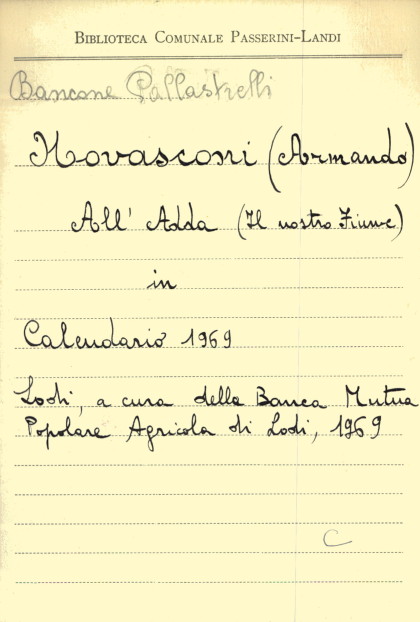 BIBLIOTECA COMUNALE PASSERINI-LANDI
Bancone Pallastrelli
Novasconi (Armando)
All' Adda (Il nostro Fiume)
in
Calendario 1969
Lodi, a cura della Banca Mutua
Popolare Agricola di Lodi, 1969
C